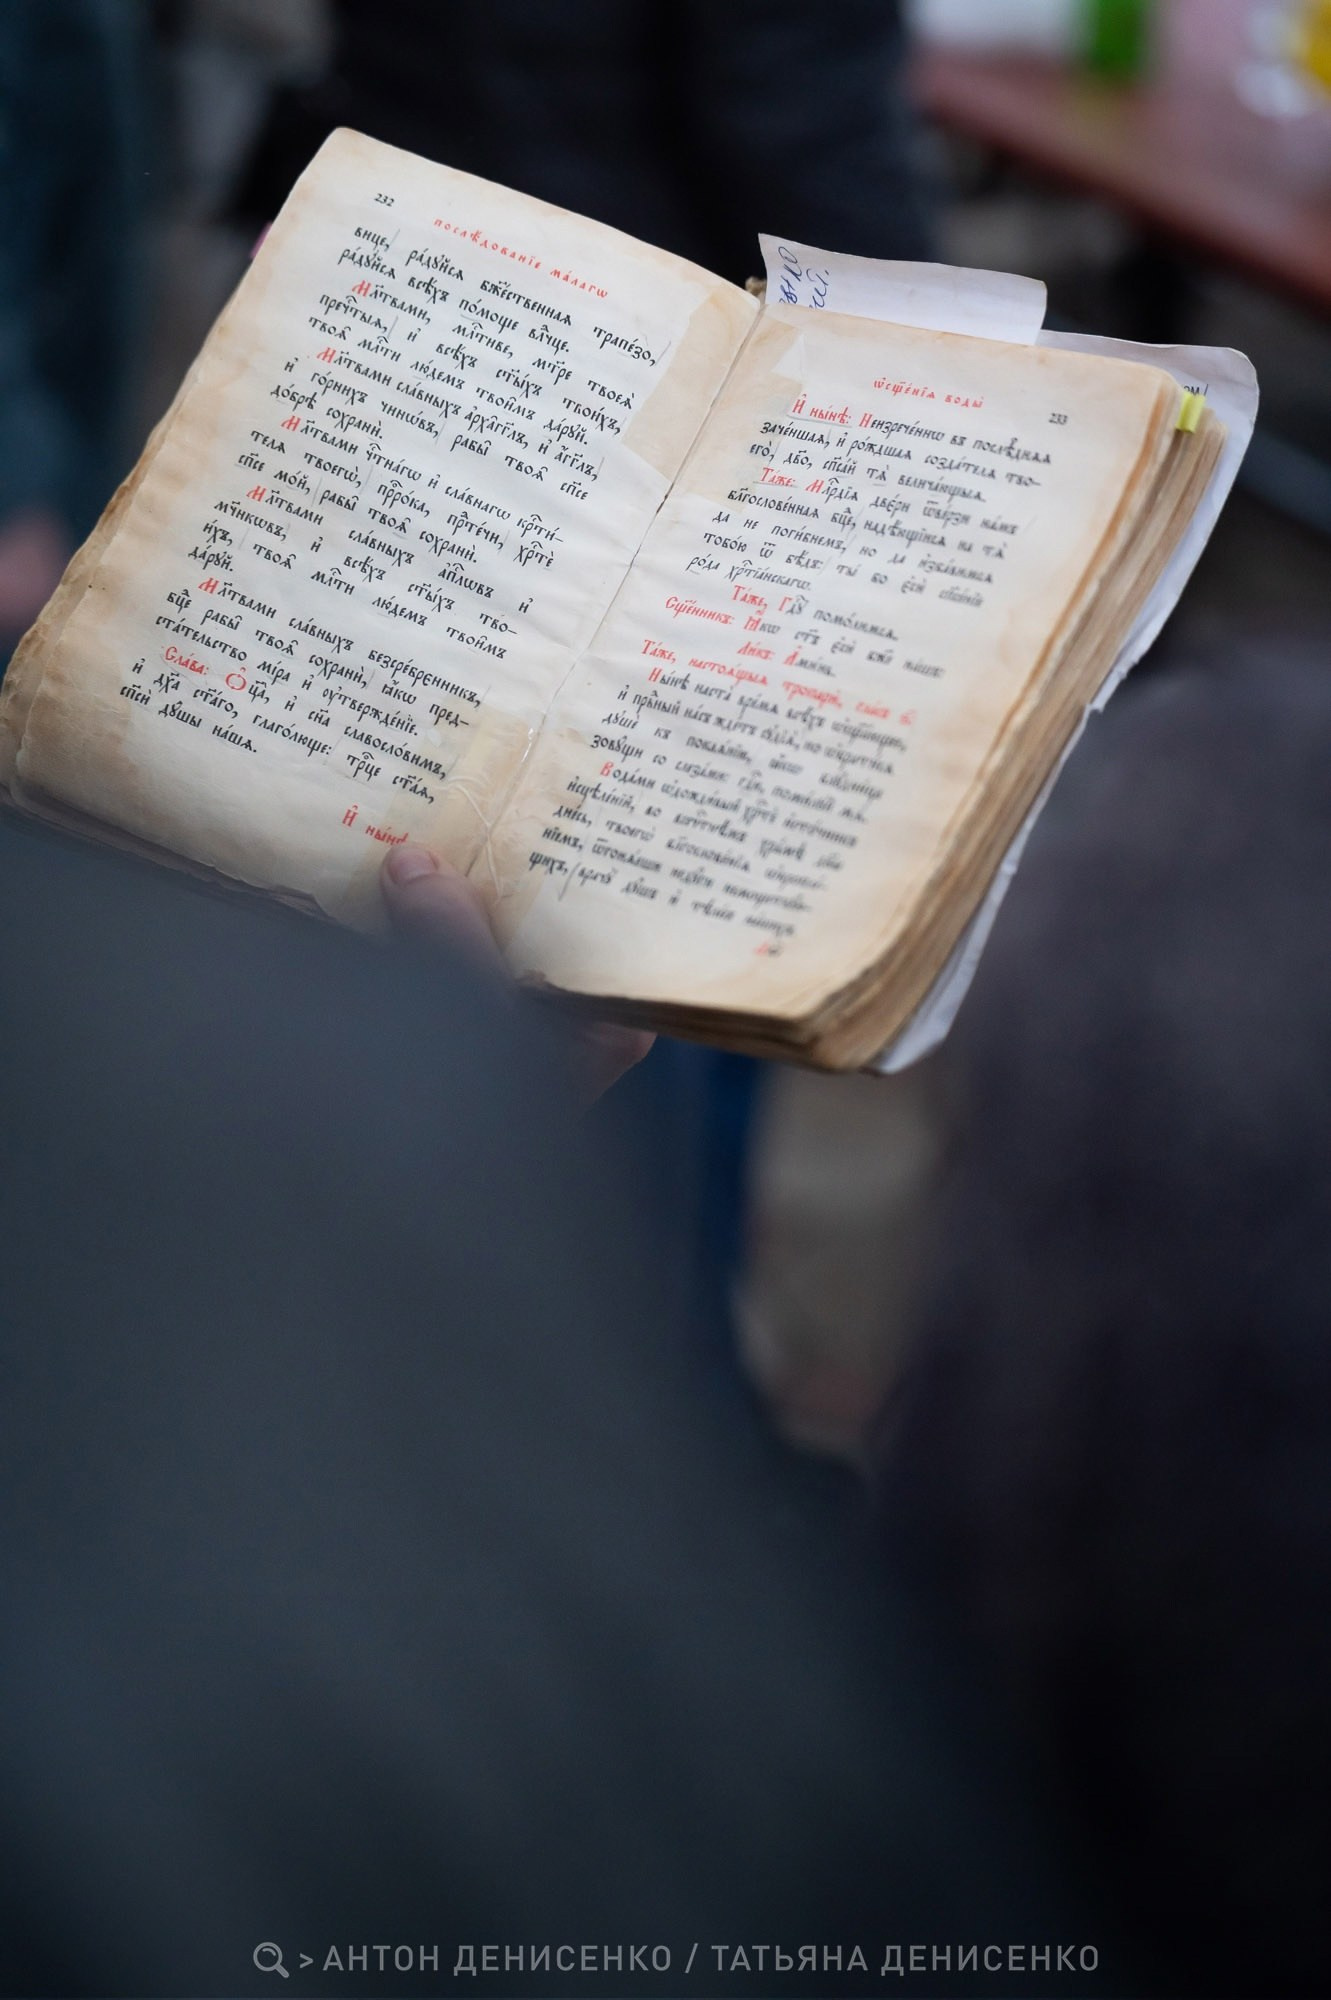 232
послѣ́дованїе ма́лагѡ
вице, ра́дꙋйсѧ бж҃е́ственнаѧ трапе́зо,
ра́дꙋйсѧ всѣ́хъ по́моще влⷣчце.
Мл҃твами, млⷭ҇тиве, мт҃ре твоеѧ̀
пречⷭ҇тыѧ, и҆ всѣ́хъ ст҃ы́хъ твои́хъ,
твоѧ̑ млⷭ҇ти лю́демъ твои̑мъ да́рꙋй.
Мл҃твами сла́вныхъ а҆рха́гг҃лъ, и҆ а҆́гг҃лъ,
и҆ го́рнихъ чинѡ́въ, рабы̑ твоѧ̑ сп҃се
до́брѣ сохранѝ.
Мл҃твами чⷭ҇тна́гѡ и҆ сла́внагѡ крⷭ҇ти́-
телѧ твоегѡ̀, прⷪ҇ро́ка, прⷣте́чи, хрⷭ҇тѐ
сп҃се мо́й, рабы̑ твоѧ̑ сохранѝ.
Мл҃твами сла́вныхъ а҆пⷭ҇лѡвъ и҆
мч҃нкѡвъ, и҆ всѣ́хъ ст҃ы́хъ тво-
и́хъ, твоѧ̑ млⷭ҇ти лю́демъ твои̑мъ
да́рꙋй.
Мл҃твами сла́вныхъ безсре́бренникъ,
бц҃е рабы̑ твоѧ̑ сохранѝ, ꙗ҆́кѡ пред-
ста́тельство мі́ра и҆ ᲂу҆твержде́нїе.
Сла́ва: Ѻ҆ц҃а̀, и҆ сн҃а славосло́вимъ,
и҆ дх҃а ст҃а́го, глаго́люще: трⷪ҇це ст҃а́ѧ,
сп҃сѝ дꙋ́шы на́шѧ.
И҆ ны́нѣ
ѡ҆сщ҃е́нїѧ воды̀
233
И҆ ны́нѣ: Неизрече́ннѡ въ послѣ́днѧѧ
заче́ншаѧ, и҆ ро́ждшаѧ созда́телѧ тво-
его̀, дв҃о, сп҃са́й тѧ̀ велича́ющыѧ.
Та́же: Млⷭ҇рдїѧ двє́ри ѿве́рзи на́мъ
бл҃гослове́ннаѧ бц҃е, надѣ́ющїисѧ на тѧ̀
да не поги́бнемъ, но да и҆зба́вимсѧ
тобо́ю ѿ бѣ́дъ: ты́ бо є҆сѝ сп҃се́нїе
ро́да хрⷭ҇тїа́нскагѡ.
Та́же, Гдⷭ҇ꙋ помо́лимсѧ.
Сщ҃е́нникъ: Ꙗ҆́кѡ ст҃ъ є҆сѝ бж҃е на́шъ:
Ли́къ: А҆ми́нь.
Та́же, настоѧ́щыѧ тропарѝ, гла́съ ѕ҃:
Ны́нѣ наста̀ вре́мѧ всѣ́хъ ѡ҆сщ҃а́ющее,
и҆ пра́вный на́съ жде́тъ сꙋдїѧ̀, но ѡ҆брати́сѧ
дꙋшѐ къ покаѧ́нїю, ꙗ҆́кѡ блꙋдни́ца
зовꙋ́щи со слеза́ми: гдⷭ҇и, поми́лꙋй мѧ̀.
Вода́ми ѡ҆дожди́вый хрⷭ҇тѐ и҆сто́чникъ
и҆сцѣле́нїй, во
дне́сь, твоегѡ̀ бл҃гослове́нїѧ
нїемъ, ѿгонѧ́еши недꙋ́ги немощствꙋ́ю-
щихъ, врачꙋ̀ дꙋ́шъ и҆ тѣле́съ на́шихъ
АНТОН ДЕНИСЕНКО / ТАТЬЯНА ДЕНИСЕНКО